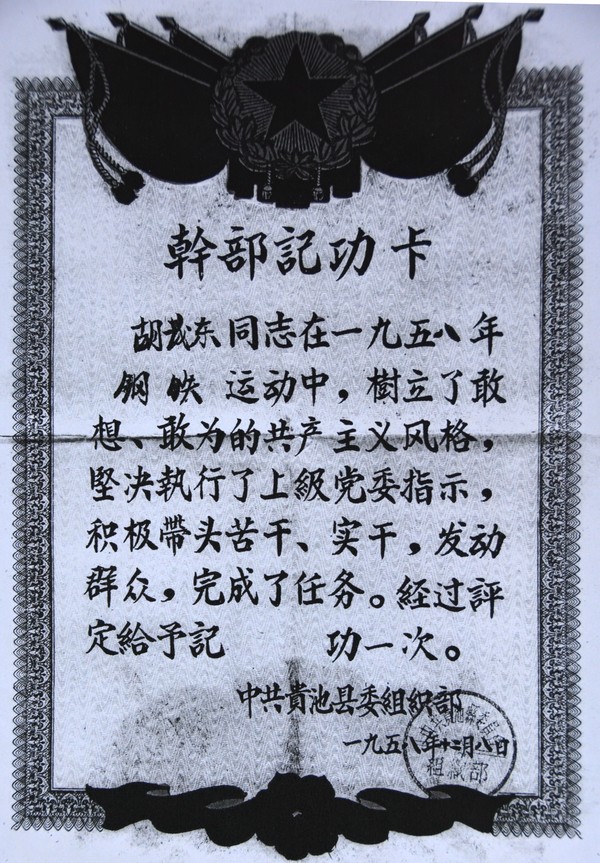 幹部記功卡
胡茂东同志在一九五八年
钢鉄运动中，樹立了敢
想、敢为的共产主义风格，
堅决執行了上級党委指示，
积极帶头苦干、实干，发动
群众，完成了任务。經过評
定給予記 功一次。
中共貴池县委組织部
一九五八年十二月八日
組織部